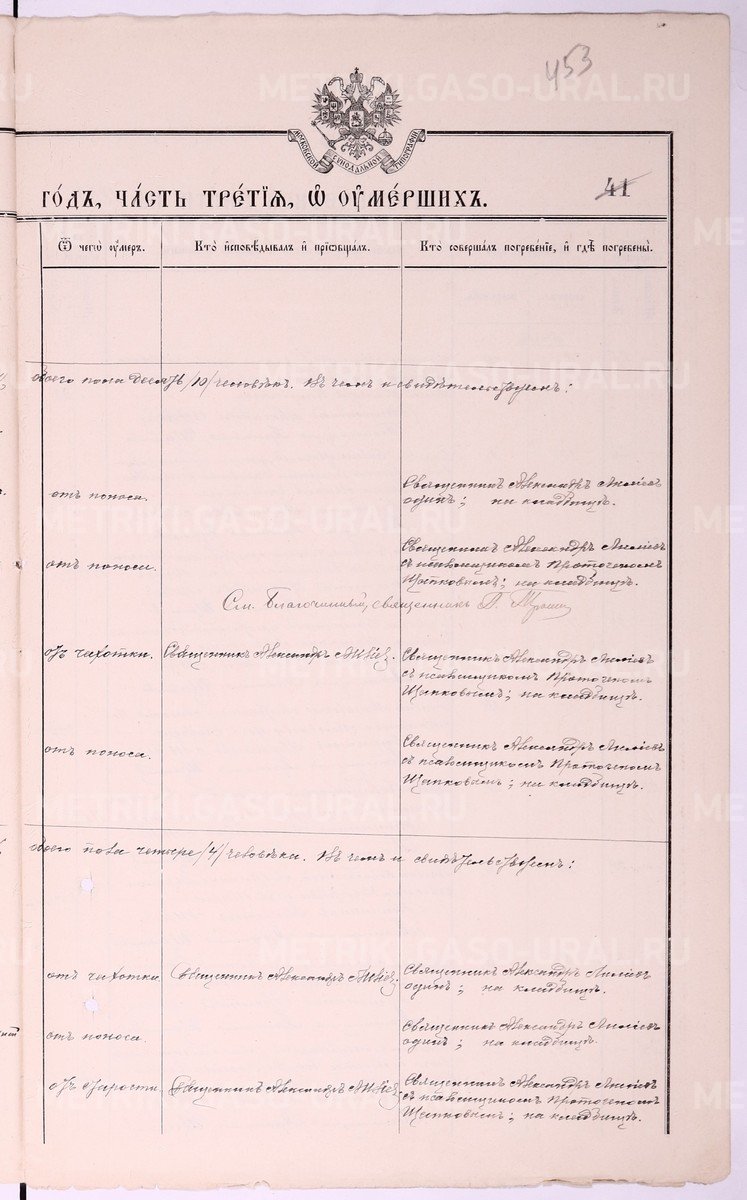 453
МОСКОВСКОЙ СѴНОДАЛЬНОЙ ТИПОГРАФІИ
ГОДЪ, ЧАСТЬ ТРЕТІЯ, Ѿ ОУМЕРШИХЪ.
41
Ѿ чегѡ оумеръ.
Кто исповѣдывалъ и пріобщалъ.
Кто совершалъ погребеніе, и гдѣ погребены.
обоего пола десять /10/ человѣкъ. Въ чемъ и свидѣтельствуемъ:
отъ поноса.
Священникъ Александръ
одинъ; на кладбищѣ.
отъ поноса.
Священникъ Александръ
съ псаломщикомъ Протогеномъ
Щипковымъ; на кладбищѣ.
См. Благочинный, священникъ
отъ чахотки.
Священникъ Александръ
Священникъ Александръ
съ псаломщикомъ Протогеномъ
Щипковымъ; на кладбищѣ.
отъ поноса.
Священникъ Александръ
съ псаломщикомъ Протогеномъ
Щипковымъ; на кладбищѣ.
обоего пола четыре /4/ человѣка. Въ чемъ и свидѣтельствуемъ:
отъ чахотки
Священникъ Александръ
Священникъ Александръ
одинъ; на кладбищѣ.
отъ поноса.
Священникъ Александръ
одинъ; на кладбищѣ.
отъ старости.
Священникъ Александръ
Священникъ Александръ
съ псаломщикомъ Протогеномъ
Щипковымъ; на кладбищѣ.
METRIKI.GASO-URAL.RU